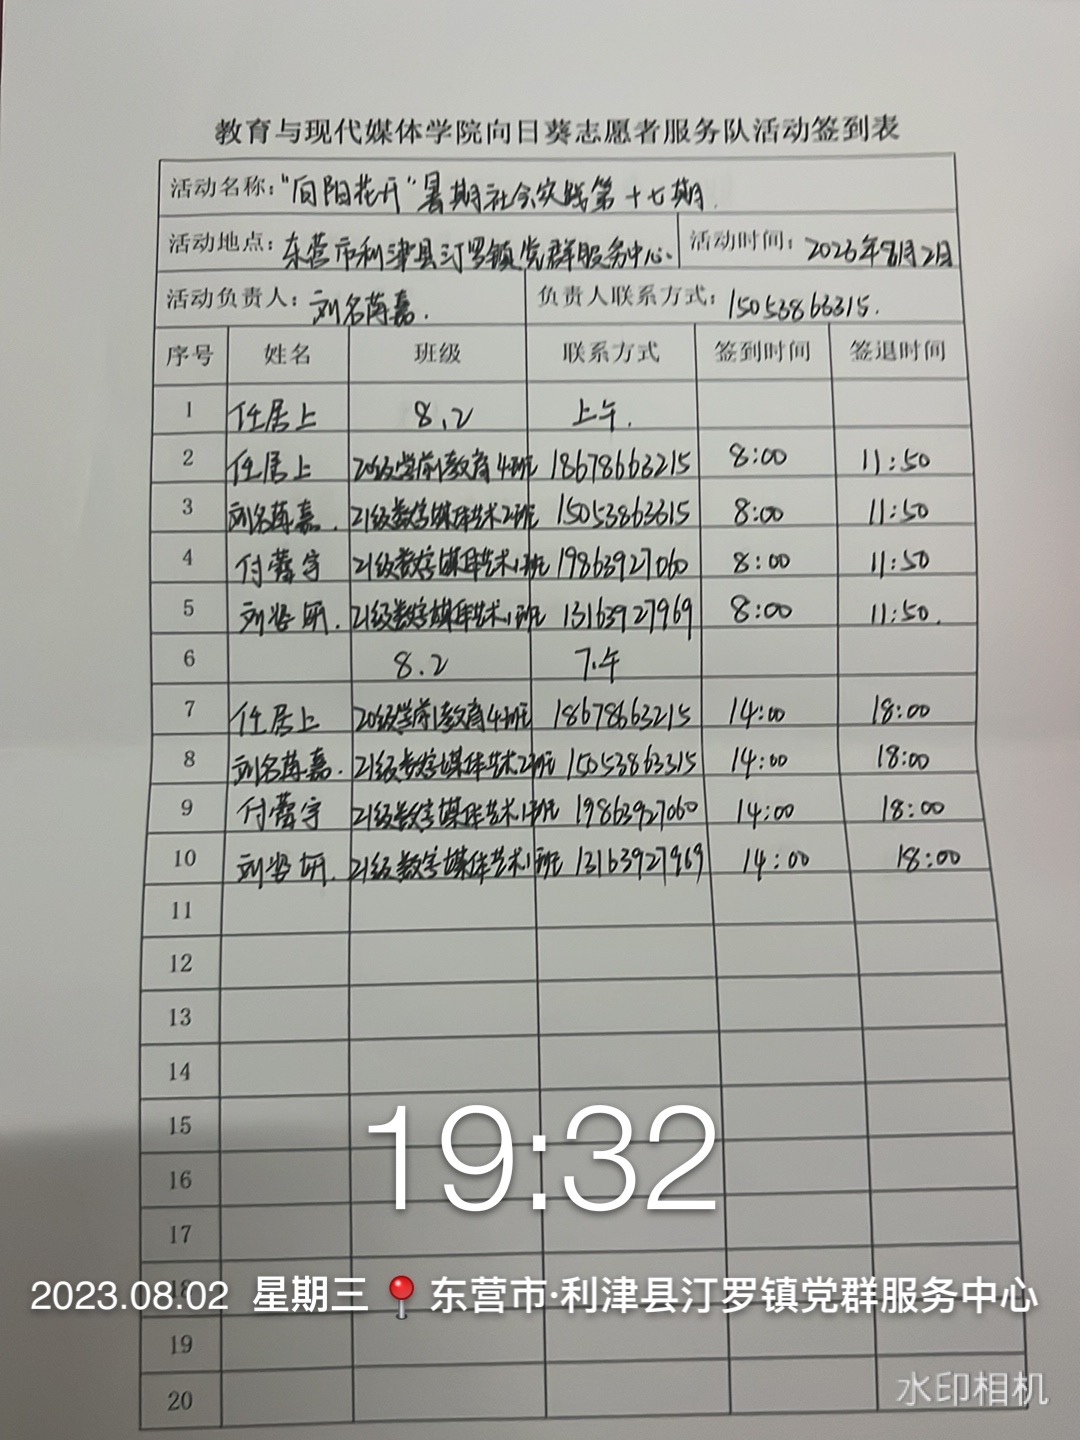 教育与现代媒体学院向日葵志愿者服务队活动签到表
活动名称："向阳花开"暑期社会实践第十七期.
活动地点：东营市利津县汀罗镇党群服务中心. 活动时间：2023年8月2日
活动负责人：刘名蒋嘉. 负责人联系方式：15053863315.
序号 姓名 班级 联系方式 签到时间 签退时间
1 任居上 8.2 上午.
2 任居上 20级学前教育4班 18678663215 8:00 11:50
3 刘名蒋嘉. 21级数字媒体艺术2班 15053863615 8:00 11:50
4 付馨宇 21级数字媒体艺术1班 19863927060 8:00 11:50
5 刘姿妍. 21级数字媒体艺术1班 13163927969 8:00 11:50.
6 8.2 下午
7 任居上 20级学前教育4班 18678663215 14:00 18:00
8 刘名蒋嘉. 21级数字媒体艺术2班 15053863315 14:00 18:00
9 付馨宇 21级数字媒体艺术1班 19863927060 14:00 18:00
10 刘姿妍. 21级数字媒体艺术1班 13163927969 14:00 18:00
11
12
13
14
15
16
17
18
19
20
19:32
2023.08.02 星期三 东营市·利津县汀罗镇党群服务中心
水印相机